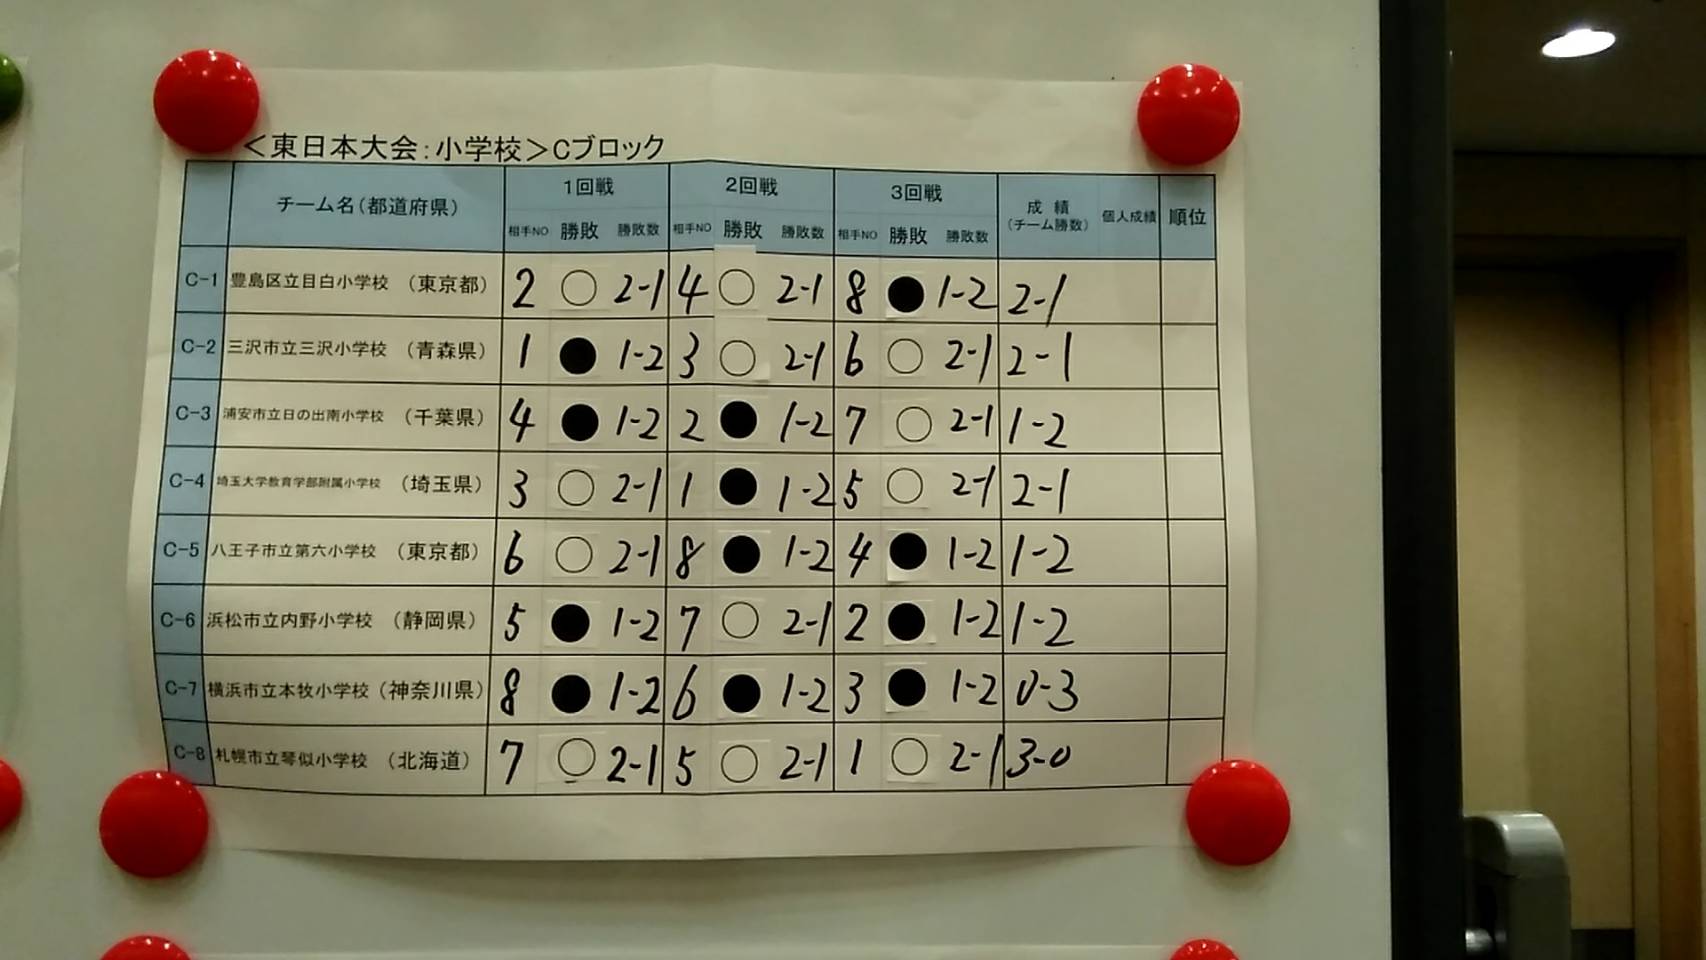 ＜東日本大会：小学校＞Cブロック
チーム名（都道府県） 1回戦 2回戦 3回戦 成績（チーム勝数） 個人成績 順位
相手NO 勝敗 勝敗数 相手NO 勝敗 勝敗数 相手NO 勝敗 勝敗数
C-1 豊島区立目白小学校 （東京都） 2 ○ 2-1 4 ○ 2-1 8 ● 1-2 2-1
C-2 三沢市立三沢小学校 （青森県） 1 ● 1-2 3 ○ 2-1 6 ○ 2-1 2-1
C-3 浦安市立日の出南小学校 （千葉県） 4 ● 1-2 2 ● 1-2 7 ○ 2-1 1-2
C-4 埼玉大学教育学部附属小学校 （埼玉県） 3 ○ 2-1 1 ● 1-2 5 ○ 2-1 2-1
C-5 八王子市立第六小学校 （東京都） 6 ○ 2-1 8 ● 1-2 4 ● 1-2 1-2
C-6 浜松市立内野小学校 （静岡県） 5 ● 1-2 7 ○ 2-1 2 ● 1-2 1-2
C-7 横浜市立本牧小学校（神奈川県） 8 ● 1-2 6 ● 1-2 3 ● 1-2 0-3
C-8 札幌市立琴似小学校 （北海道） 7 ○ 2-1 5 ○ 2-1 1 ○ 2-1 3-0